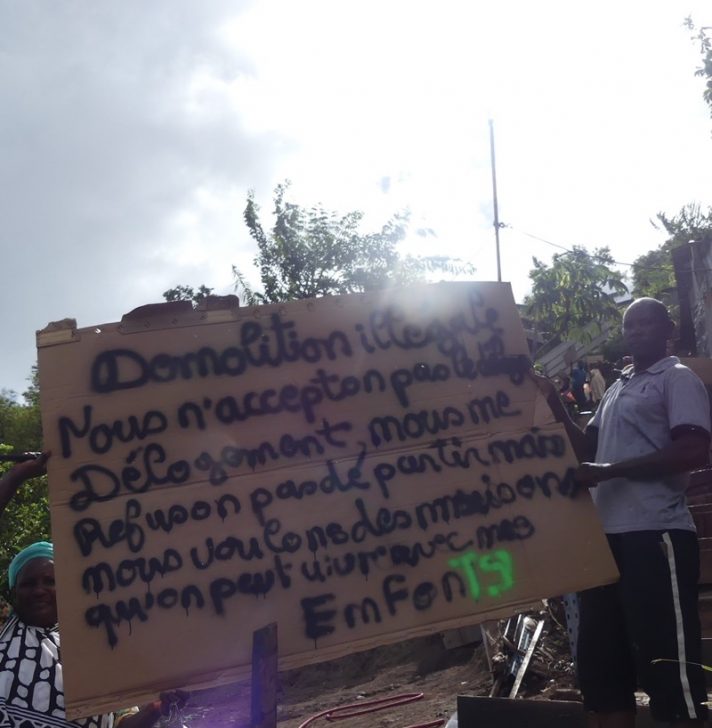 Domolition illegale
Nous n'accepton pas le
Délogement, nous me
Refuson pas de partir mais
nous voulons des maisons
qu'on peut vivre avec mes
EmFonTS